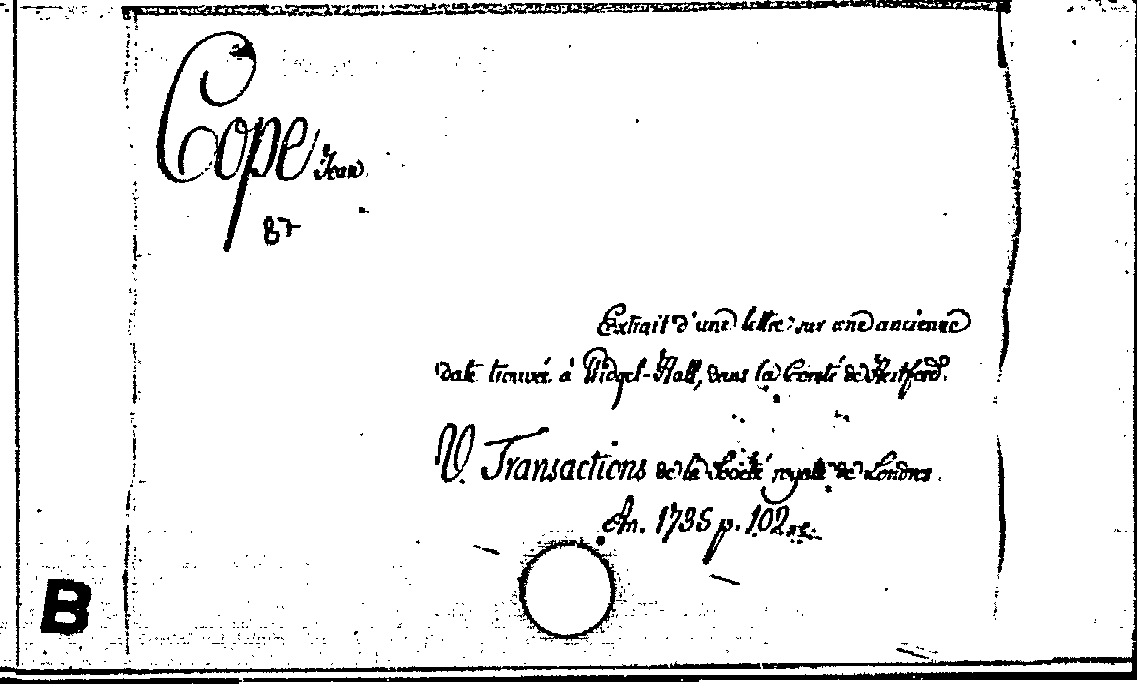 Cope, Jean
87
Extrait d'une lettre sur une ancienne
date trouvée à Widgel-Hall, dans la Comté de Hertford.
V. Transactions de la Société royale de Londres.
An. 1735 p. 102
B